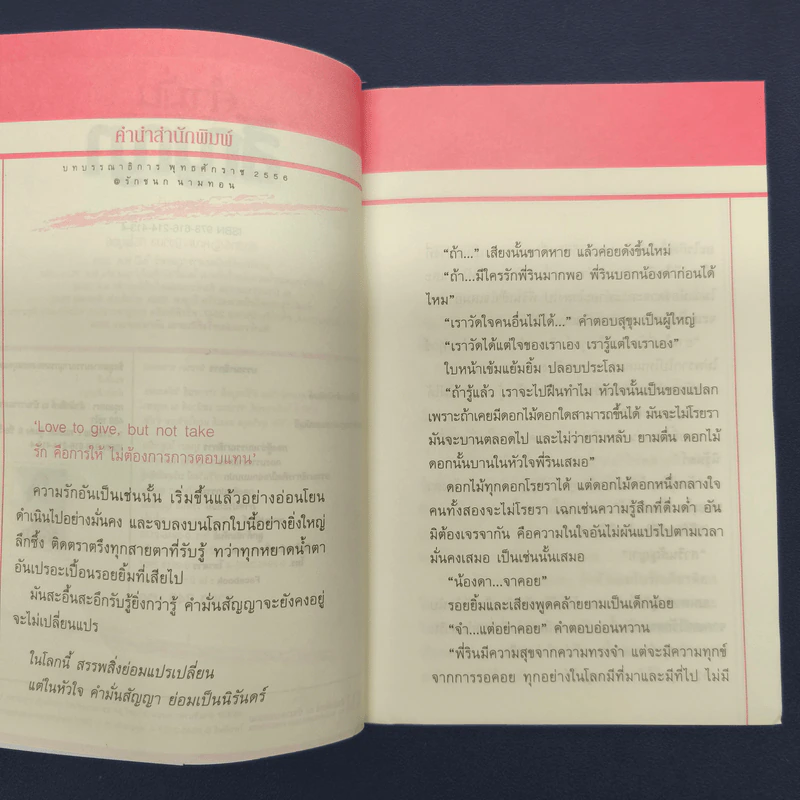 คำนำสำนักพิมพ์
บทบรรณาธิการ พุทธศักราช 2556
@รักชนก นามทอน
'Love to give, but not take
รัก คือการให้ ไม่ต้องการการตอบแทน'
ความรักอันเป็นเช่นนั้น เริ่มขึ้นแล้วอย่างอ่อนโยน
ดำเนินไปอย่างมั่นคง และจบลงบนโลกใบนี้อย่างยิ่งใหญ่
ลึกซึ้ง ติดตราตรึงทุกสายตาที่รับรู้ ทว่าทุกหยาดน้ำตา
อันเปรอะเปื้อนรอยยิ้มที่เสียไป
มันสะอื้นสะอึกรับรู้ยิ่งกว่ารู้ คำมั่นสัญญาจะยังคงอยู่
จะไม่เปลี่ยนแปร
ในโลกนี้ สรรพสิ่งย่อมแปรเปลี่ยน
แต่ในหัวใจ คำมั่นสัญญา ย่อมเป็นนิรันดร์
"ถ้า..." เสียงนั้นขาดหาย แล้วค่อยดังขึ้นใหม่
"ถ้า...มีใครรักพี่รินมากพอ พี่รินบอกน้องดาก่อนได้
ไหม"
"เราวัดใจคนอื่นไม่ได้..." คำตอบสุขุมเป็นผู้ใหญ่
"เราวัดได้แต่ใจของเราเอง เรารู้แต่ใจเราเอง"
ใบหน้าเข้มแย้มยิ้ม ปลอบประโลม
"ถ้ารู้แล้ว เราจะไปฝืนทำไม หัวใจนั้นเป็นของแปลก
เพราะถ้าเคยมีดอกไม้ดอกใดสามารถขึ้นได้ มันจะไม่โรยรา
มันจะบานตลอดไป และไม่ว่ายามหลับ ยามตื่น ดอกไม้
ดอกนั้นบานในหัวใจพี่รินเสมอ"
ดอกไม้ทุกดอกโรยราได้ แต่ดอกไม้ดอกหนึ่งกลางใจ
คนทั้งสองจะไม่โรยรา เฉกเช่นความรู้สึกที่ดื่มด่ำ อัน
มิต้องเจรจากัน คือความในใจอันไม่ผันแปรไปตามเวลา
มั่นคงเสมอ เป็นเช่นนั้นเสมอ
"น้องดา...จาคอย"
รอยยิ้มและเสียงพูดคล้ายยามเป็นเด็กน้อย
"จำ...แต่อย่าคอย" คำตอบอ่อนหวาน
"พี่รินมีความสุขจากความทรงจำ แต่จะมีความทุกข์
จากการรอคอย ทุกอย่างในโลกมีที่มาและมีที่ไป ไม่มี